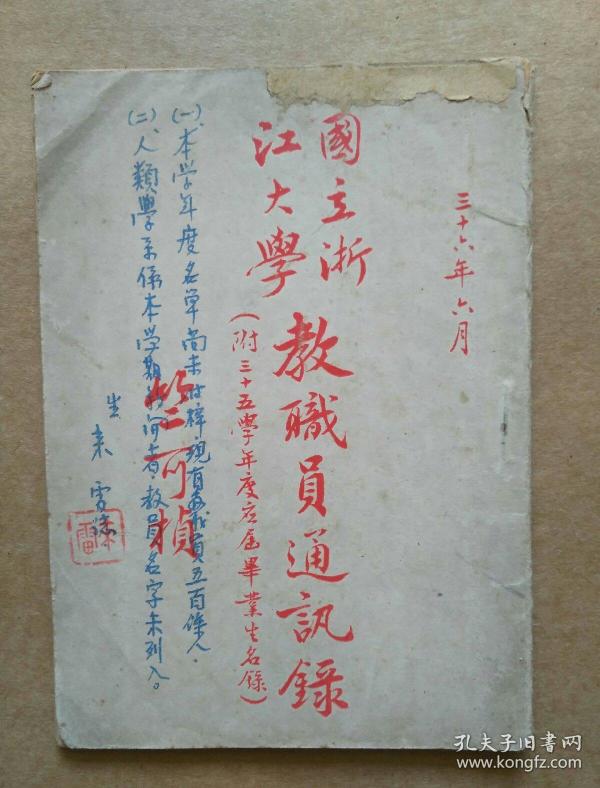 三十六年六月
國立浙
江大學
教職員通訊錄
(附三十五學年度应屆畢業生名錄)
竺可楨
(一)、本學年度名單尚未付梓，現有教職員五百餘人。
(二)、人類學系係本學期 者，教員名字未列入。
生
孔夫子旧书网
www.kongfz.com